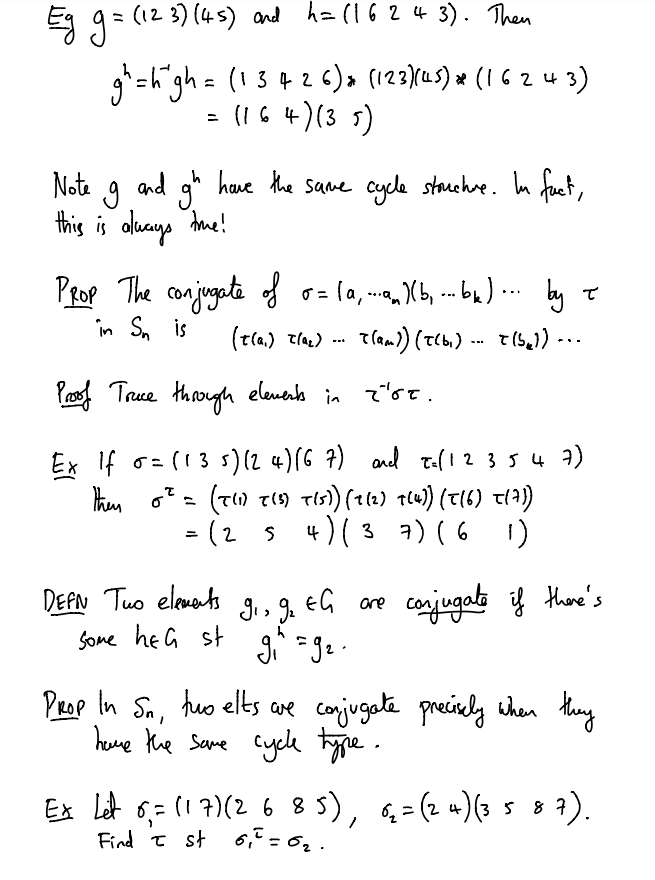 Eg g = (1 2 3)(4 5) and h = (1 6 2 4 3). Then
gʰ = h⁻¹gh = (1 3 4 2 6) * (1 2 3)(4 5) * (1 6 2 4 3)
= (1 6 4)(3 5)
Note g and gʰ have the same cycle structure. In fact,
this is always true!
PROP The conjugate of σ = (a₁ ... aₘ)(b₁ ... bₖ) ... by τ
in Sₙ is (τ(a₁) τ(a₂) ... τ(aₘ)) (τ(b₁) ... τ(bₖ)) ...
Proof Trace through elements in τ⁻¹στ.
Ex If σ = (1 3 5)(2 4)(6 7) and τ = (1 2 3 5 4 7)
then σ^τ = (τ(1) τ(3) τ(5)) (τ(2) τ(4)) (τ(6) τ(7))
= (2 5 4)(3 7)(6 1)
DEFN Two elements g₁, g₂ ∈ G are conjugate if there's
some h ∈ G st g₁ʰ = g₂.
PROP In Sₙ, two elts are conjugate precisely when they
have the same cycle type.
Ex Let σ₁ = (1 7)(2 6 8 5), σ₂ = (2 4)(3 5 8 7).
Find τ st σ₁^τ = σ₂.